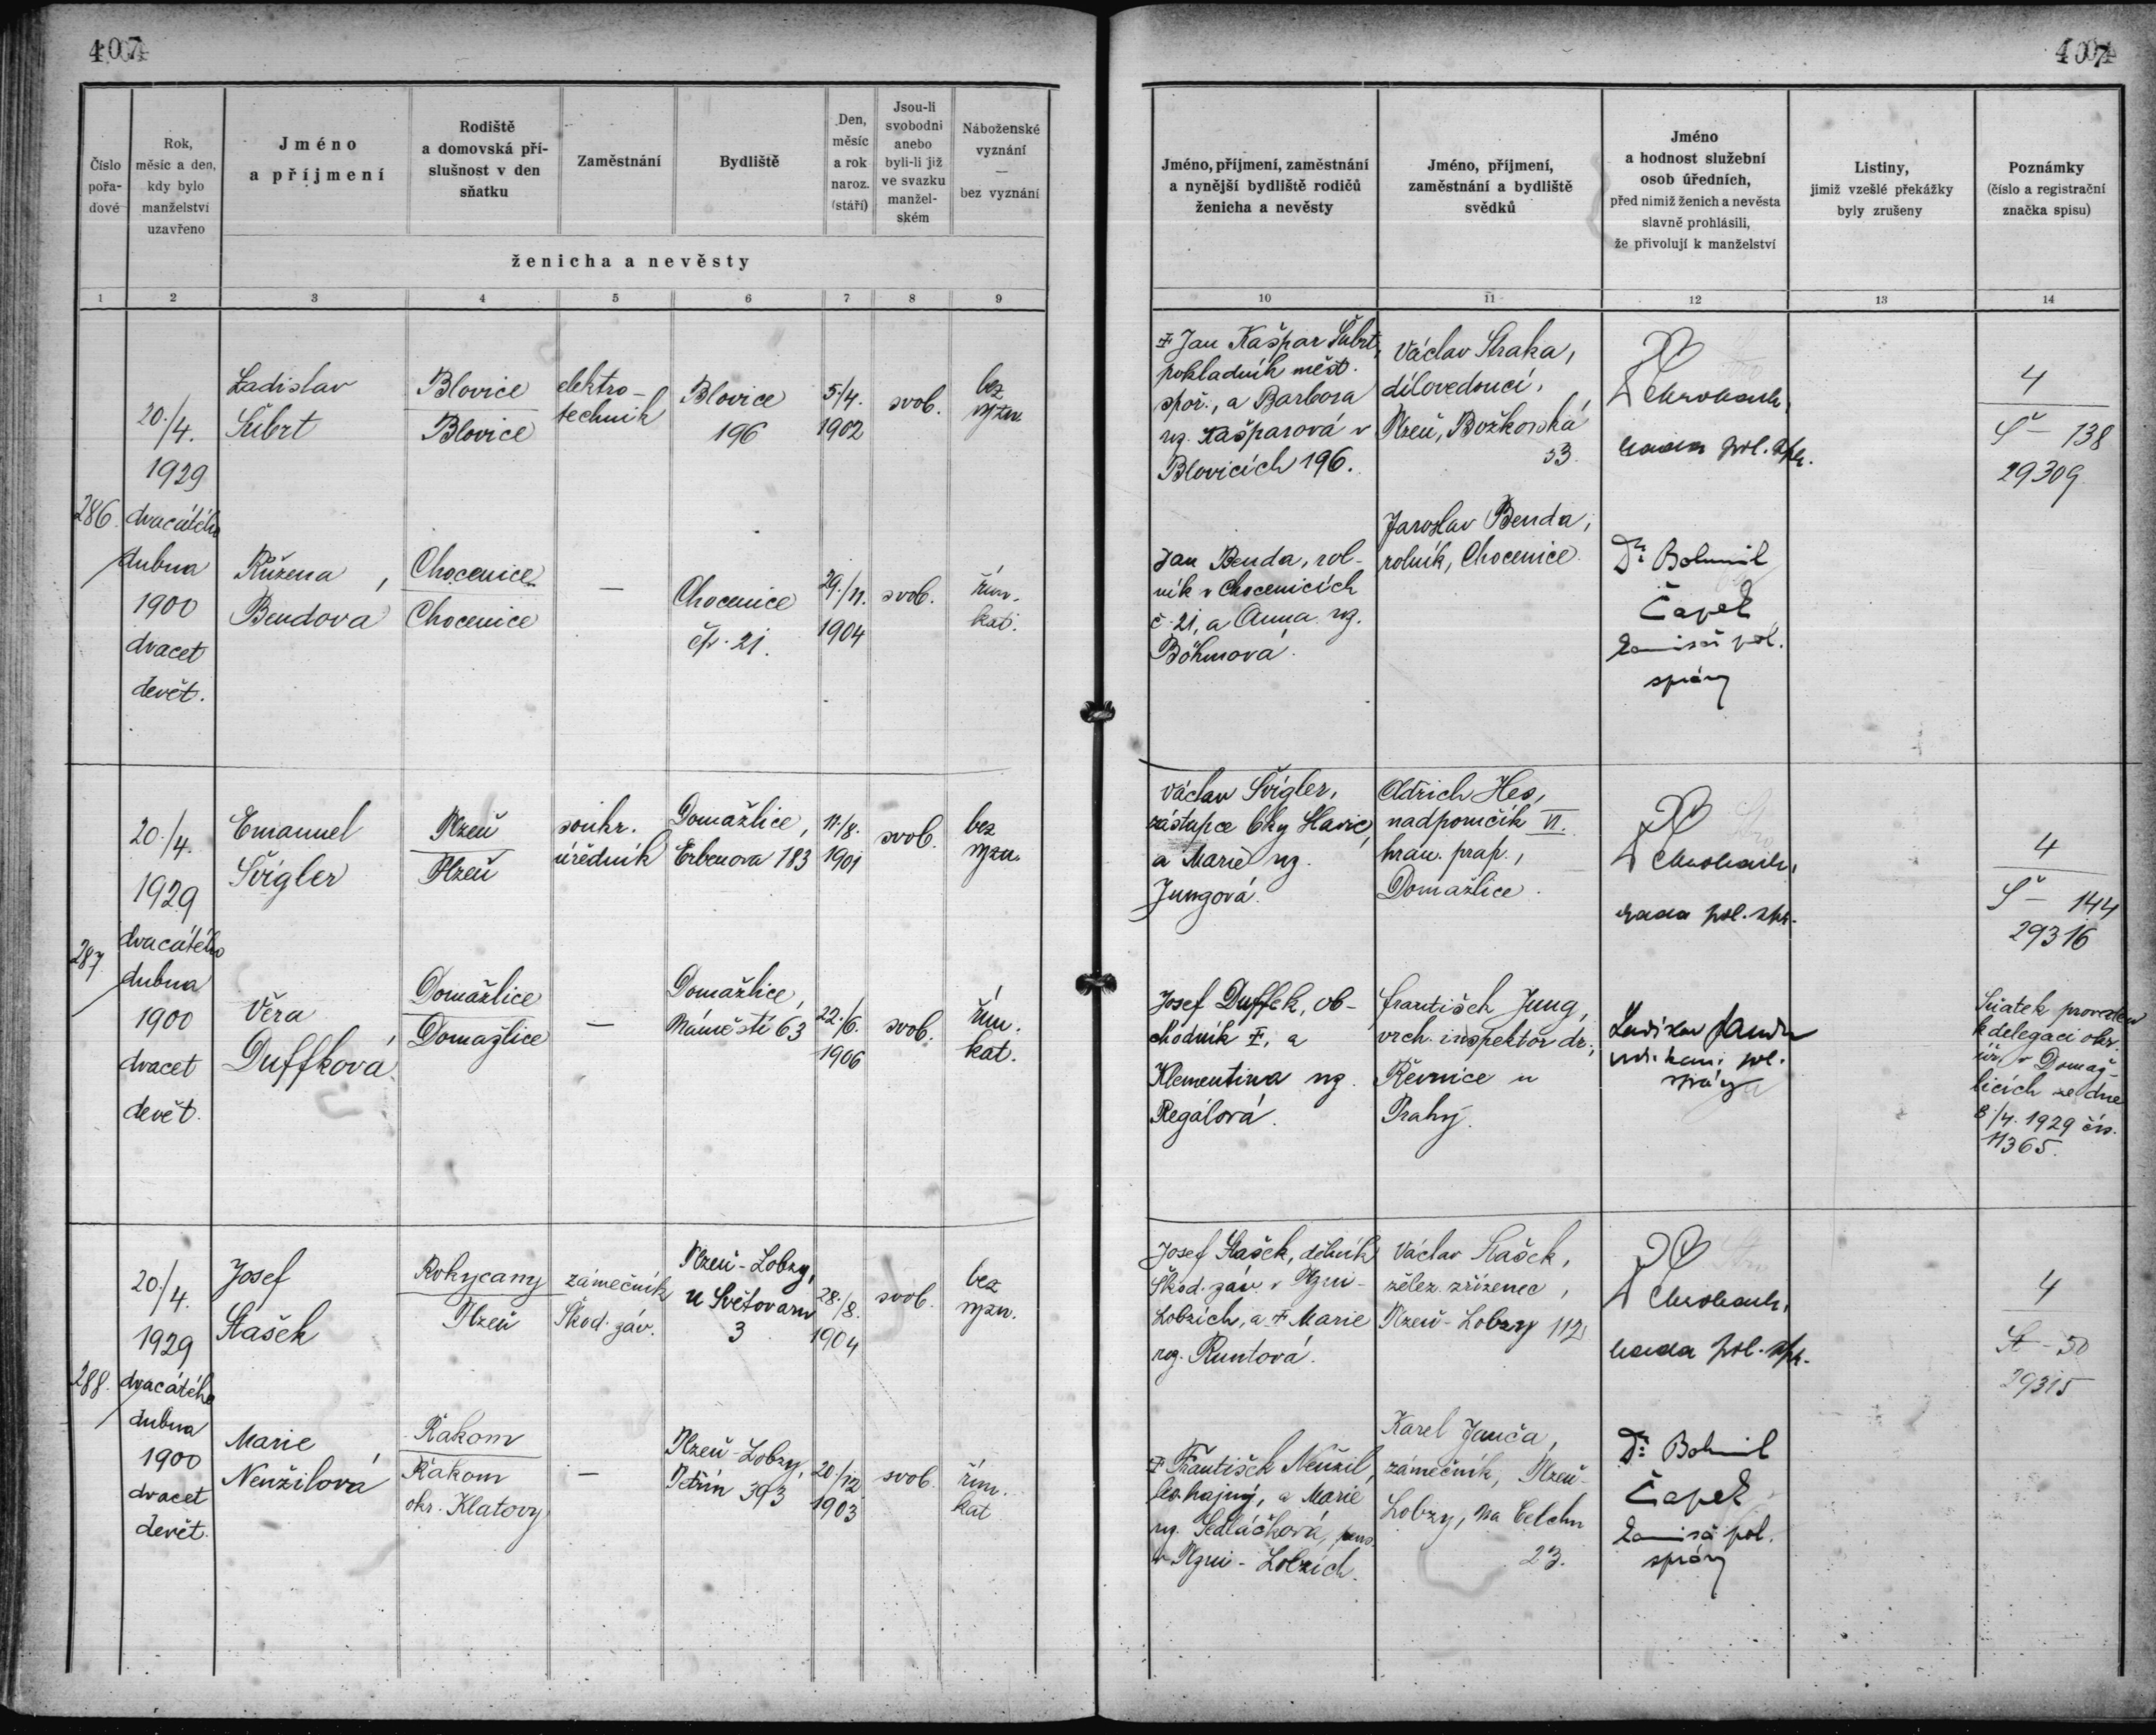 407
407
Číslo pořadové
Rok, měsíc a den, kdy bylo manželství uzavřeno
Jméno a příjmení
Rodiště a domovská příslušnost v den sňatku
Zaměstnání
Bydliště
Den, měsíc a rok naroz. (stáří)
Jsou-li svobodni anebo byli-li již ve svazku manželském
Náboženské vyznání — bez vyznání
ženicha a nevěsty
Jméno, příjmení, zaměstnání a nynější bydliště rodičů ženicha a nevěsty
Jméno, příjmení, zaměstnání a bydliště svědků
Jméno a hodnost služební osob úředních, před nimiž ženich a nevěsta slavně prohlásili, že přivolují k manželství
Listiny, jimiž vzešlé překážky byly zrušeny
Poznámky (číslo a registrační značka spisu)
1 2 3 4 5 6 7 8 9 10 11 12 13 14
286.
20./4.
1929
dvacátého
dubna
1900
dvacet
devět.
Ladislav
Šubrt
Blovice
Blovice
elektro-
technik
Blovice
196
5./4.
1902
svob.
bez
vyzn.
Růžena
Bendová
Chocenice
Chocenice
—
Chocenice
čp. 21.
29./11.
1904
svob.
řím.
kat.
Jan Kašpar Šubrt,
pokladník měst.
spoř., a Barbora
roz. Kašparová v
Blovicích 196.
Jan Benda, rol-
ník v Chocenicích
č. 21, a Anna roz.
Böhmová.
Václav Straka,
dílovedoucí,
Plzeň, Božkovská
53.
Jaroslav Benda,
rolník, Chocenice.
rada pol. spr.
Dr. Bohumil
Čapek
komisař pol.
správy
4
Š - 138
29309
287
20./4.
1929
dvacátého
dubna
1900
dvacet
devět.
Emanuel
Švígler
Plzeň
Plzeň
soukr.
úředník
Domažlice,
Erbenova 183
11./8.
1901
svob.
bez
vyzn.
Věra
Duffková
Domažlice
Domažlice
—
Domažlice,
Náměstí 63
22./6.
1906
svob.
řím.
kat.
Václav Švígler,
zástupce bky Slavie,
a Marie roz.
Jungová.
Josef Duffek, ob-
chodník, a
Klementina roz.
Regálová.
Oldřich Hes,
nadporučík VI.
hran. prap.,
Domažlice.
František Jung,
vrch. inspektor dr.,
Řevnice u
Prahy.
rada pol. spr.
Ladislav
pol.
správy
4
Š - 144
29316
Sňatek proveden
k delegaci okr.
úř. v Domaž-
licích ze dne
8/4. 1929 čís.
11365.
288.
20./4.
1929
dvacátého
dubna
1900
dvacet
devět.
Josef
Stašek
Rokycany
Plzeň
zámečník
Škod. záv.
Plzeň-Lobzy,
u Světovaru
3
28./8.
1904
svob.
bez
vyzn.
Marie
Neužilová
Řakom
Řakom
okr. Klatovy
—
Plzeň-Lobzy,
Petřín 393
20./12
1903
svob.
řím.
kat
Josef Stašek, dělník
Škod. záv. v Plzni-
Lobzích, a Marie
roz. Runtová.
František Neužil,
hajný, a Marie
roz. Sedláčková,
v Plzni-Lobzích.
Václav Stašek,
želez. zřízenec,
Plzeň-Lobzy 112
Karel Janča,
zámečník, Plzeň-
Lobzy, Na Celchu
23.
rada pol. spr.
Dr. Bohumil
Čapek
komisař pol.
správy
4
St - 50
29315